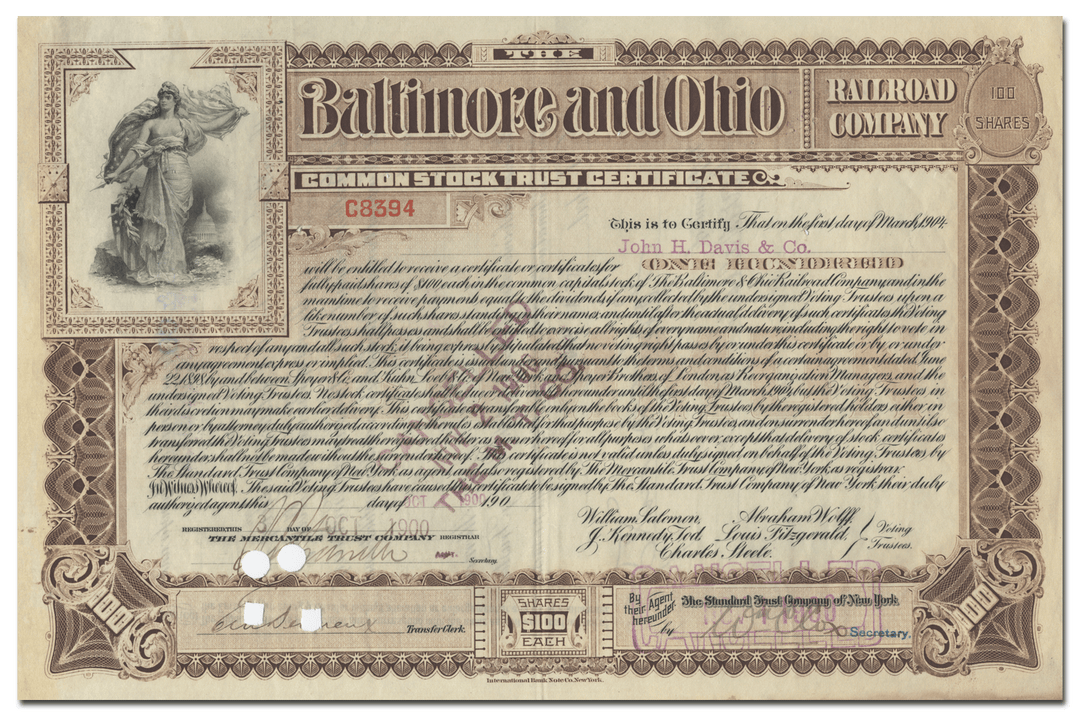 THE
Baltimore and Ohio
RAILROAD
COMPANY
100
SHARES
COMMON STOCK TRUST CERTIFICATE
C8394
This is to Certify That on the first day of March, 1904
John H. Davis & Co.
will be entitled to receive a certificate or certificates for ONE HUNDRED
fully paid shares of $100 each in the common capital stock of The Baltimore & Ohio Railroad Company and in the
meantime to receive payments equal to the dividends if any collected by the undersigned Voting Trustees upon a
like number of such shares standing in their names, and until after the actual delivery of such certificates the Voting
Trustees shall possess and shall be entitled to exercise all rights of every name and nature including the right to vote in
respect of any and all such stock, it being expressly stipulated that no voting right passes by or under this certificate or by or under
any agreement express or implied. This certificate is issued under and pursuant to the terms and conditions of a certain agreement dated June
22, 1898 by and between Speyer & Co. and Kuhn, Loeb & Co. of New York and Speyer Brothers, of London, as Reorganization Managers, and the
undersigned Voting Trustees. No stock certificate shall be due or deliverable hereunder until the first day of March 1904, but the Voting Trustees, in
their discretion may make earlier delivery. This certificate is transferable only on the books of the Voting Trustees by the registered holders either in
person or by attorney duly authorized according to the rules established for that purpose by the Voting Trustees, and on surrender hereof and until so
transferred the Voting Trustees may treat the registered holder as owner hereof for all purposes whatsoever, except that delivery of stock certificates
hereunder shall not be made without the surrender hereof. This certificate is not valid unless duly signed on behalf of the Voting Trustees by
The Standard Trust Company of New York as agent and also registered by The Mercantile Trust Company of New York as registrar.
In Witness Whereof, The said Voting Trustees have caused this certificate to be signed by The Standard Trust Company of New York their duly
authorized agent this day of OCT 1900 190
CANCELLED
THE M. T. CO.
REGISTERED THIS 3 DAY OF OCT 1900
THE MERCANTILE TRUST COMPANY REGISTRAR
Asst. Secretary
William Salomon, Abraham Wolff,
J. Kennedy, Tod, Louis Fitzgerald,
Charles Steele.
Voting
Trustees.
CANCELLED
100
Transfer Clerk.
SHARES
$100
EACH
By
their Agent
hereunder
The Standard Trust Company of New York
by Secretary.
100
International Bank Note Co. New York.